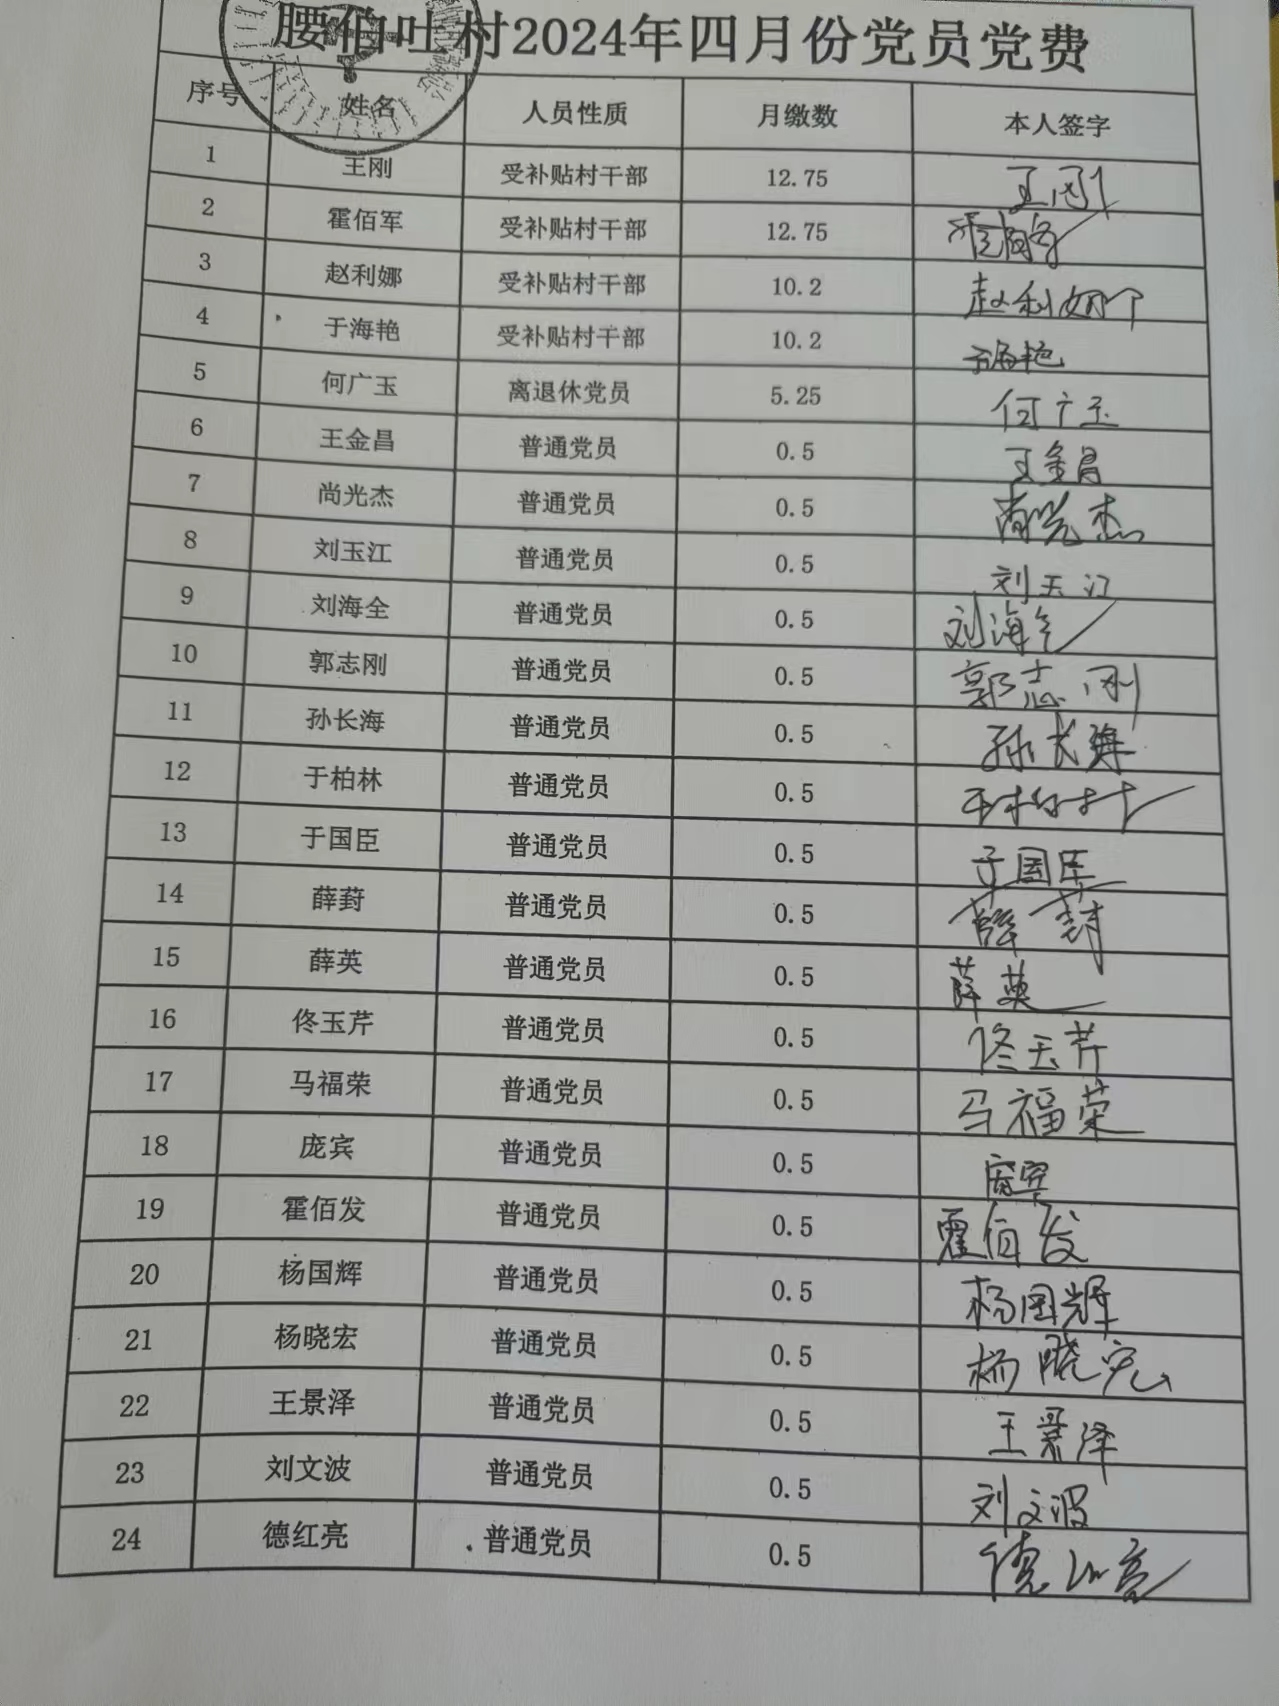 腰伯吐村2024年四月份党员党费
序号 姓名 人员性质 月缴数 本人签字
1 王刚 受补贴村干部 12.75 王刚
2 霍佰军 受补贴村干部 12.75
3 赵利娜 受补贴村干部 10.2 赵利娜
4 于海艳 受补贴村干部 10.2 于海艳
5 何广玉 离退休党员 5.25 何广玉
6 王金昌 普通党员 0.5 王金昌
7 尚光杰 普通党员 0.5 尚光杰
8 刘玉江 普通党员 0.5 刘玉江
9 刘海全 普通党员 0.5 刘海全
10 郭志刚 普通党员 0.5 郭志刚
11 孙长海 普通党员 0.5 孙长海
12 于柏林 普通党员 0.5 于柏林
13 于国臣 普通党员 0.5 于国臣
14 薛葑 普通党员 0.5 薛葑
15 薛英 普通党员 0.5 薛英
16 佟玉芹 普通党员 0.5 佟玉芹
17 马福荣 普通党员 0.5 马福荣
18 庞宾 普通党员 0.5 庞宾
19 霍佰发 普通党员 0.5 霍佰发
20 杨国辉 普通党员 0.5 杨国辉
21 杨晓宏 普通党员 0.5 杨晓宏
22 王景泽 普通党员 0.5 王景泽
23 刘文波 普通党员 0.5 刘文波
24 德红亮 普通党员 0.5 德红亮